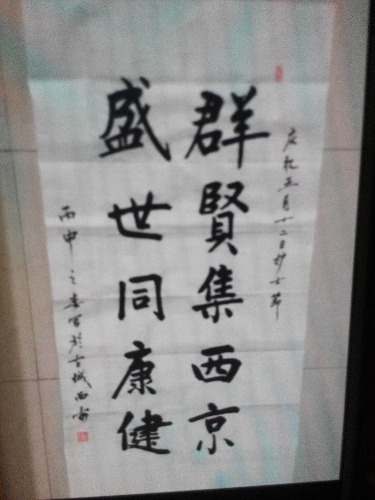 庆祝五月十二日护士节
群賢集西京
盛世同康健
丙申之春写於古城西安